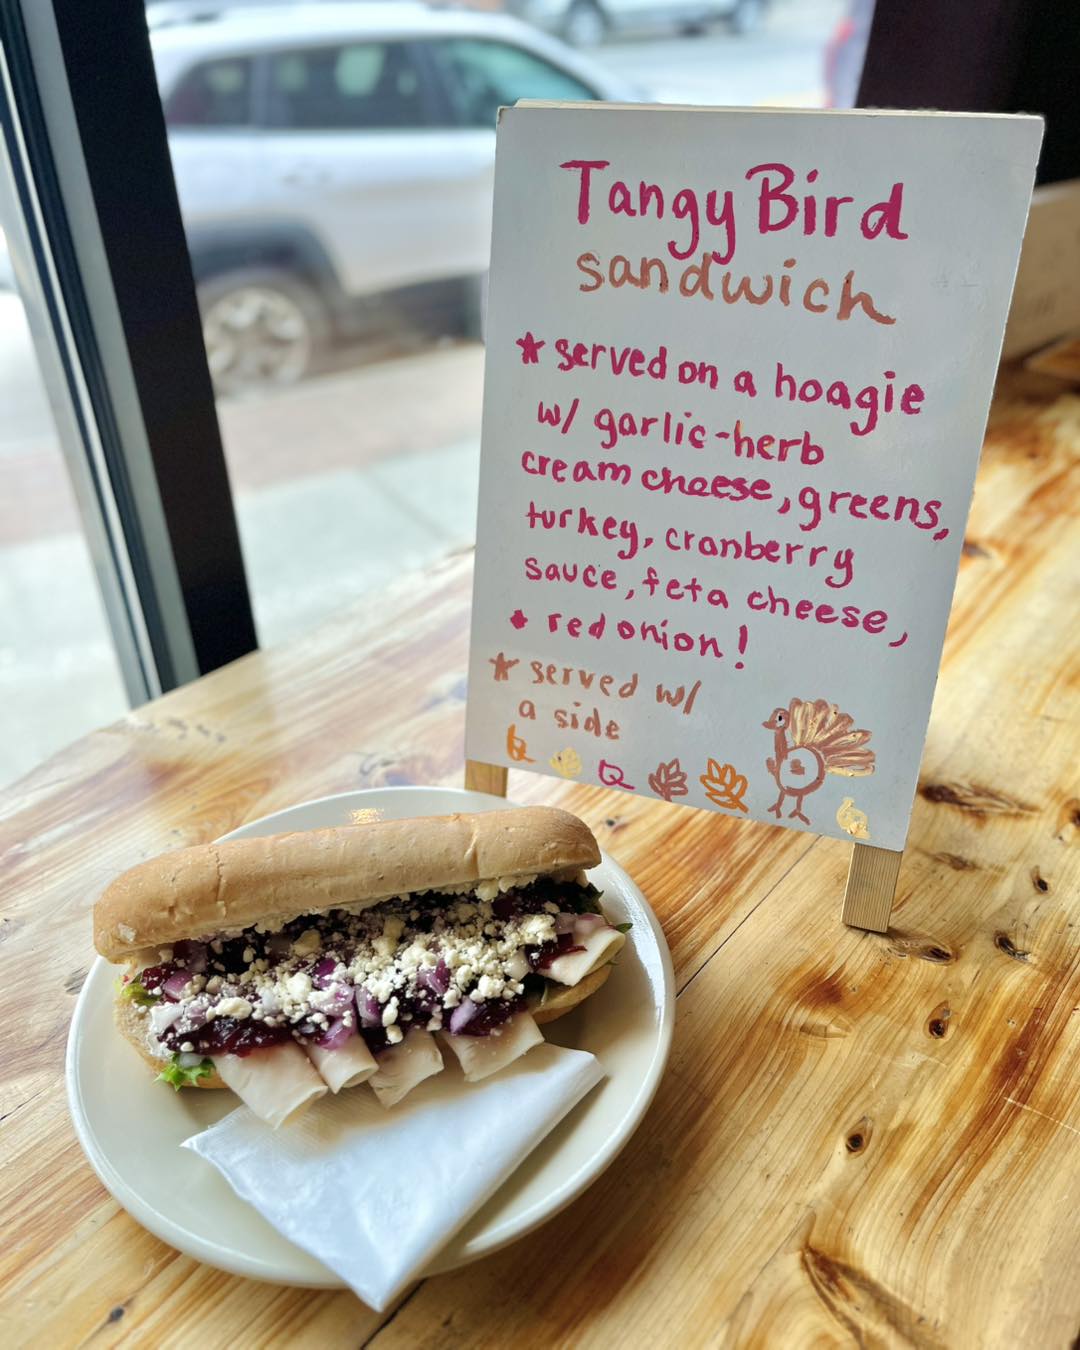 Tangy Bird
sandwich
* served on a hoagie
w/ garlic-herb
cream cheese, greens,
turkey, cranberry
sauce, feta cheese,
+ red onion!
* served w/
a side